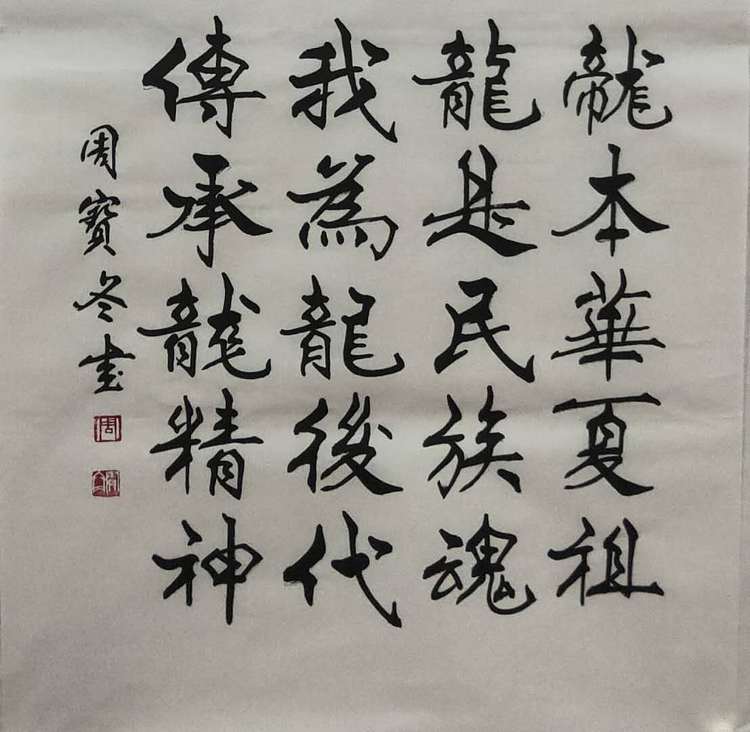 龍本華夏祖
龍是民族魂
我為龍後代
傳承龍精神
周寶冬書
周